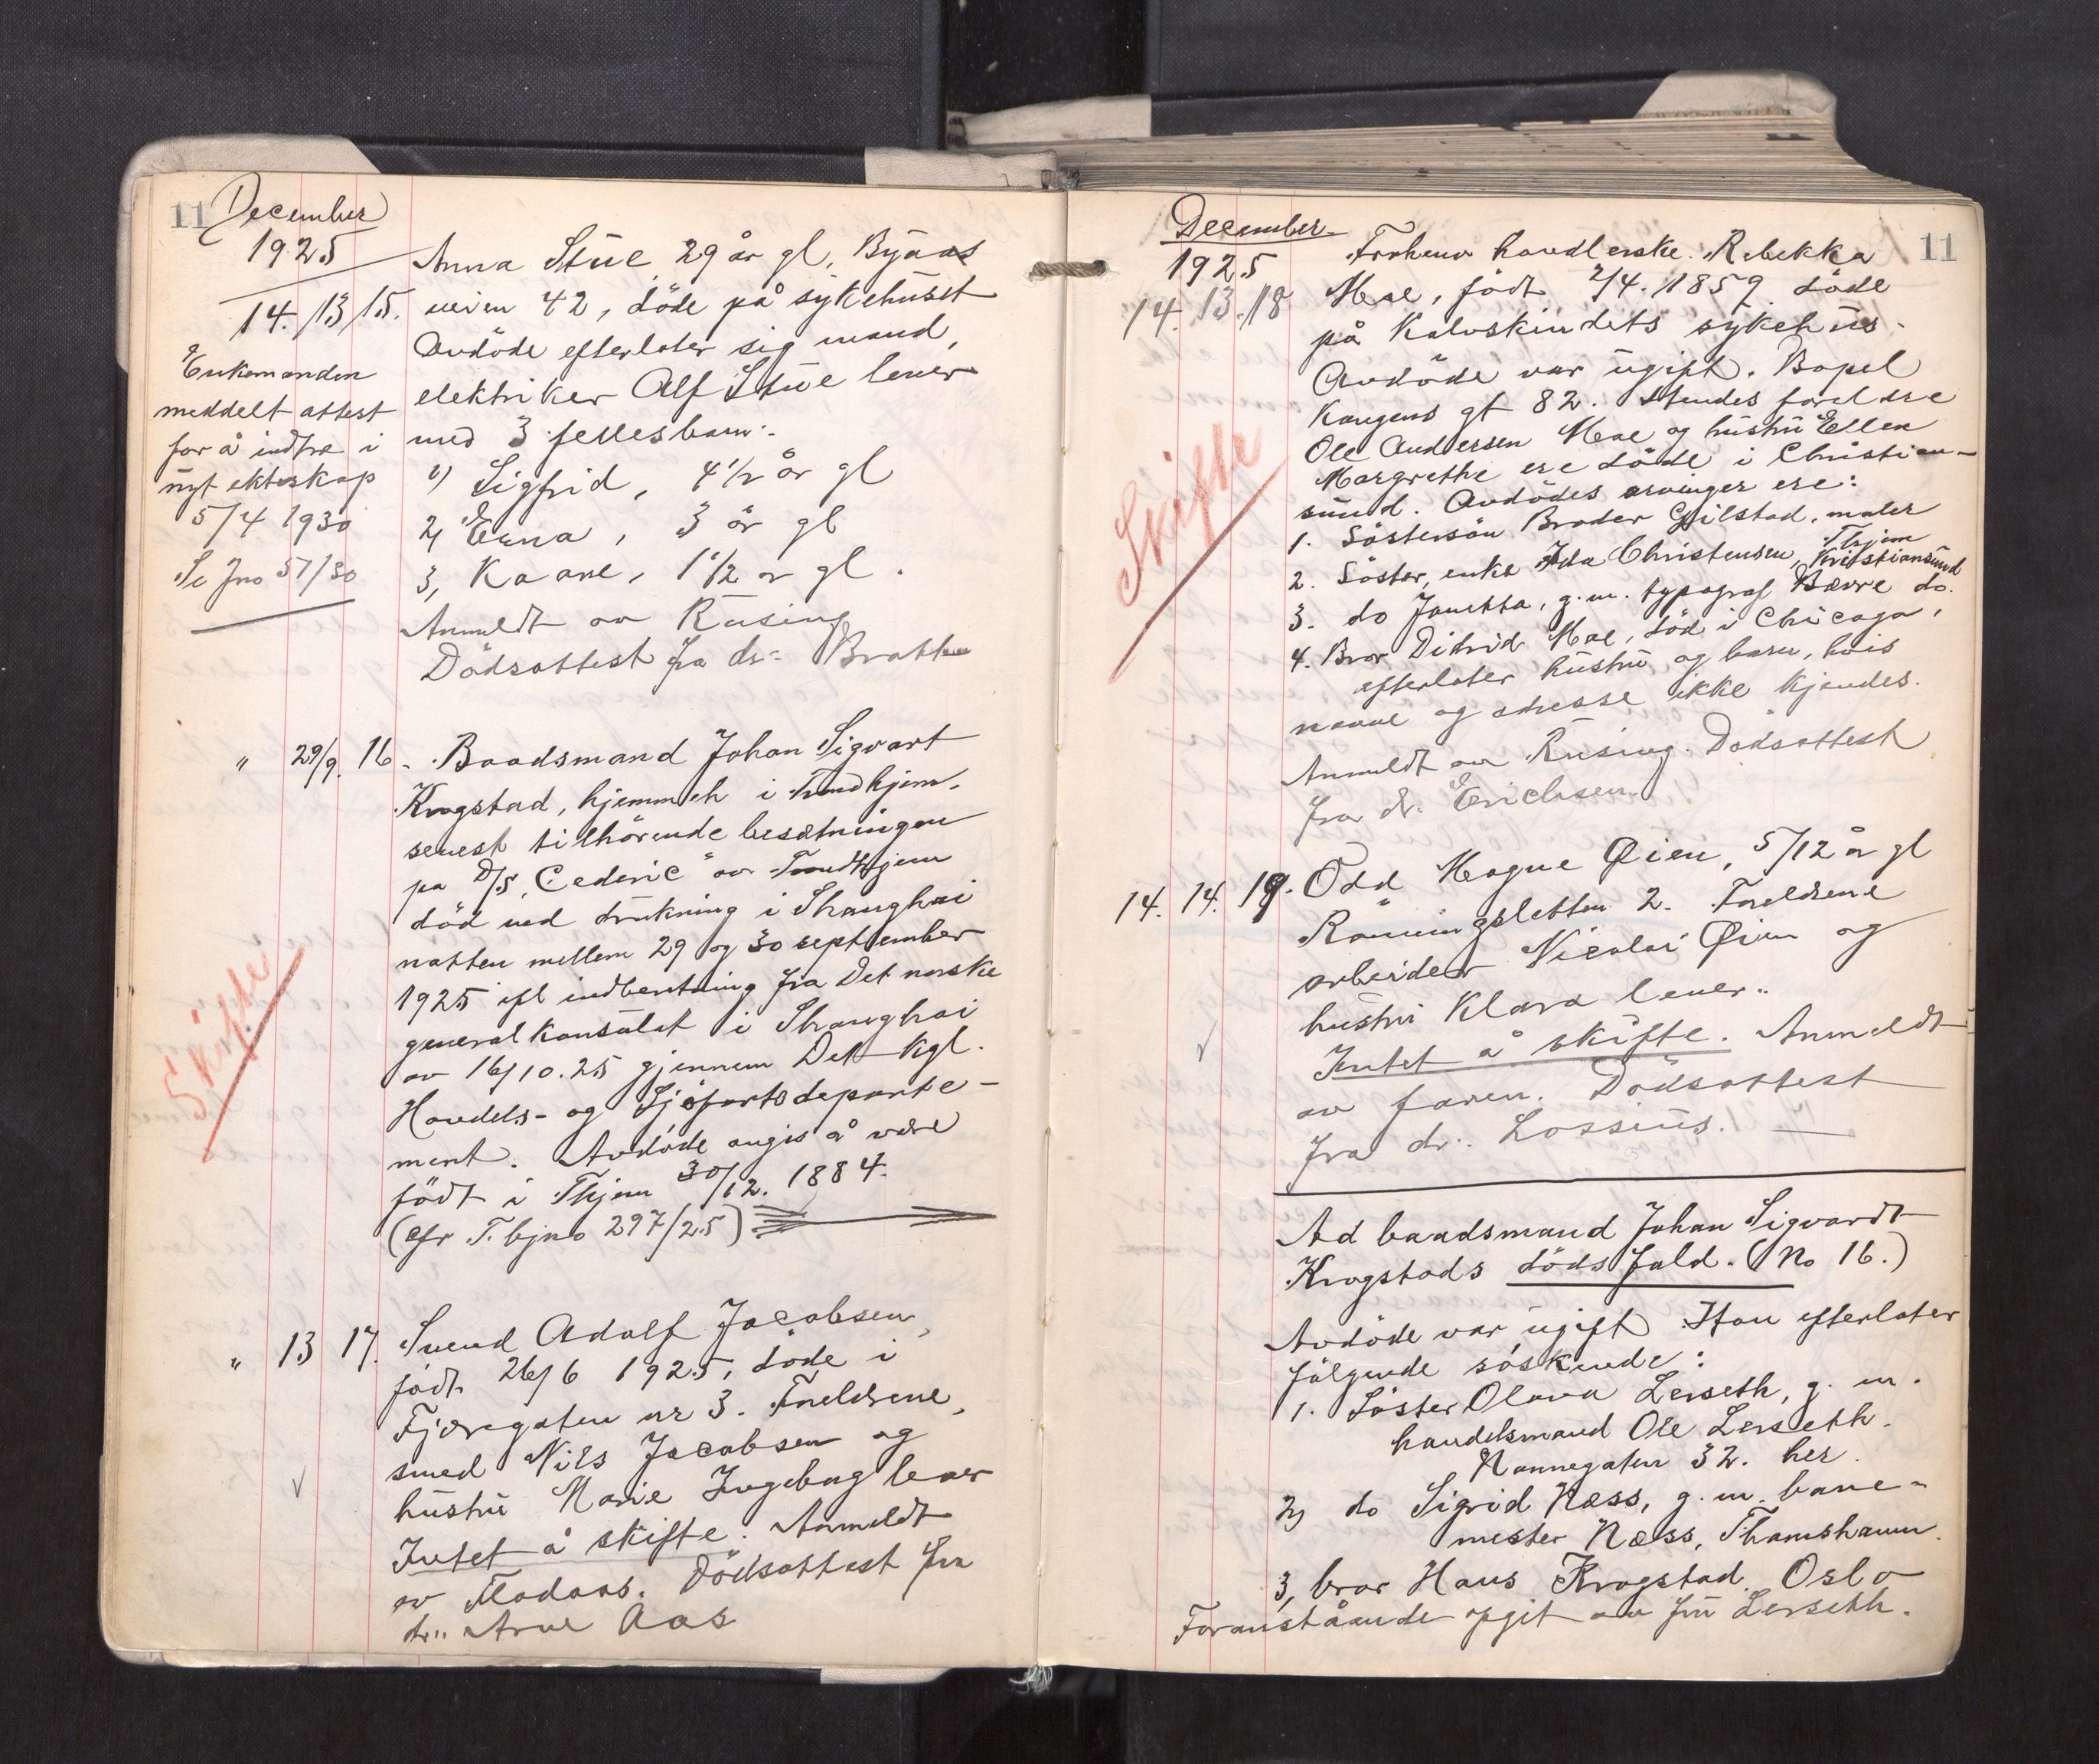 11 December
1925
14. 13 15.
Enkemanden
meddelt attest
for å indtre i
nyt ekteskap
5/4 1930
Se Jno 57/30
Anna Stue 29 år gl, Byaas
veien 42, döde på sykehuset
Avdöde efterlater sig mand,
elektriker Alf Stue lever
med 3 fellesbarn:
1) Sigfrid, 4 1/2 år gl
2, Erna, 3 år gl
3, Kaare, 1 1/2 år gl.
Anmeldt av Rusing
Dödsattest fra dr. Bratt
" 29/9. 16. Baadsmand Johan Sigvart
Krogstad, hjemmeh i Trondhjem,
senest tilhörende besætningen
på D/S "Cederic" av Trondhjem
död ved drukning i Shanghai
natten mellem 29 og 30 september
1925 ifl indberetning fra Det norske
generalkonsulat i Shanghai
av 16/10.25 gjennem Det kgl.
Handels- og Sjöfartsdeparte-
ment. Avdöde angis å være
födt i Thjem 30/12. 1884.
(cfr T. bjno 297/25)
Skifte
" 13 17. Svend Adolf Jacobsen,
födt 26/6 1925, döde i
Fjæregaten nr 3. Foreldrene,
smed Nils Jacobsen og
hustru Marie Ingeborg lever
Intet å skifte. Anmeldt
av Fladaas. Dödsattest fra
dr. Arne Aas
December 11
1925
14. 13. 18
Frøkenv handlerske Rebekka
Moe, födt 2/4. 1859 döde
på Kalvskindets sykehus.
Avdöde var ugift. Bopel
Kongens gt 82. Hendes foreldre
Ole Andersen Moe og hustru Ellen
Margrethe ere döde i Christian-
sund. Avdödes arvinger ere:
1. Söstersön Broder Gjilstad, maler
Thjem
2. Söster, enke Ida Christensen, Kristiansund
3. do Janetta, g.m. typograf Bævre do.
4. Bror Didrik Moe, död i Chicago,
efterlater hustru og barn, hvis
navne og adresse ikke kjendes.
Anmeldt av Rusing. Dödsattest
fra dr. Erichsen
Skifte
14. 14. 19. Odd Magne Øien, 5/12 år gl
Rønningsletten 2. Foreldrene
arbeider Nicolai Øien og
hustru Klara lever.
Intet å skifte. Anmeldt
av faren. Dödsattest
fra dr. Lossius.
Ad baadsmand Johan Sigvardt
Krogstads dödsfald. (No 16.)
Avdöde var ugift Han efterlater
fölgende söskende:
1. Söster Olava Lerseth, g. m.
handelsmand Ole Lerseth.
Nonnegaten 32. her.
2, do Sigrid Næss, g.m. bane-
mester Næss, Thamshavn.
3, bror Hans Krogstad Oslo
Foranstående opgit av fru Lerseth.